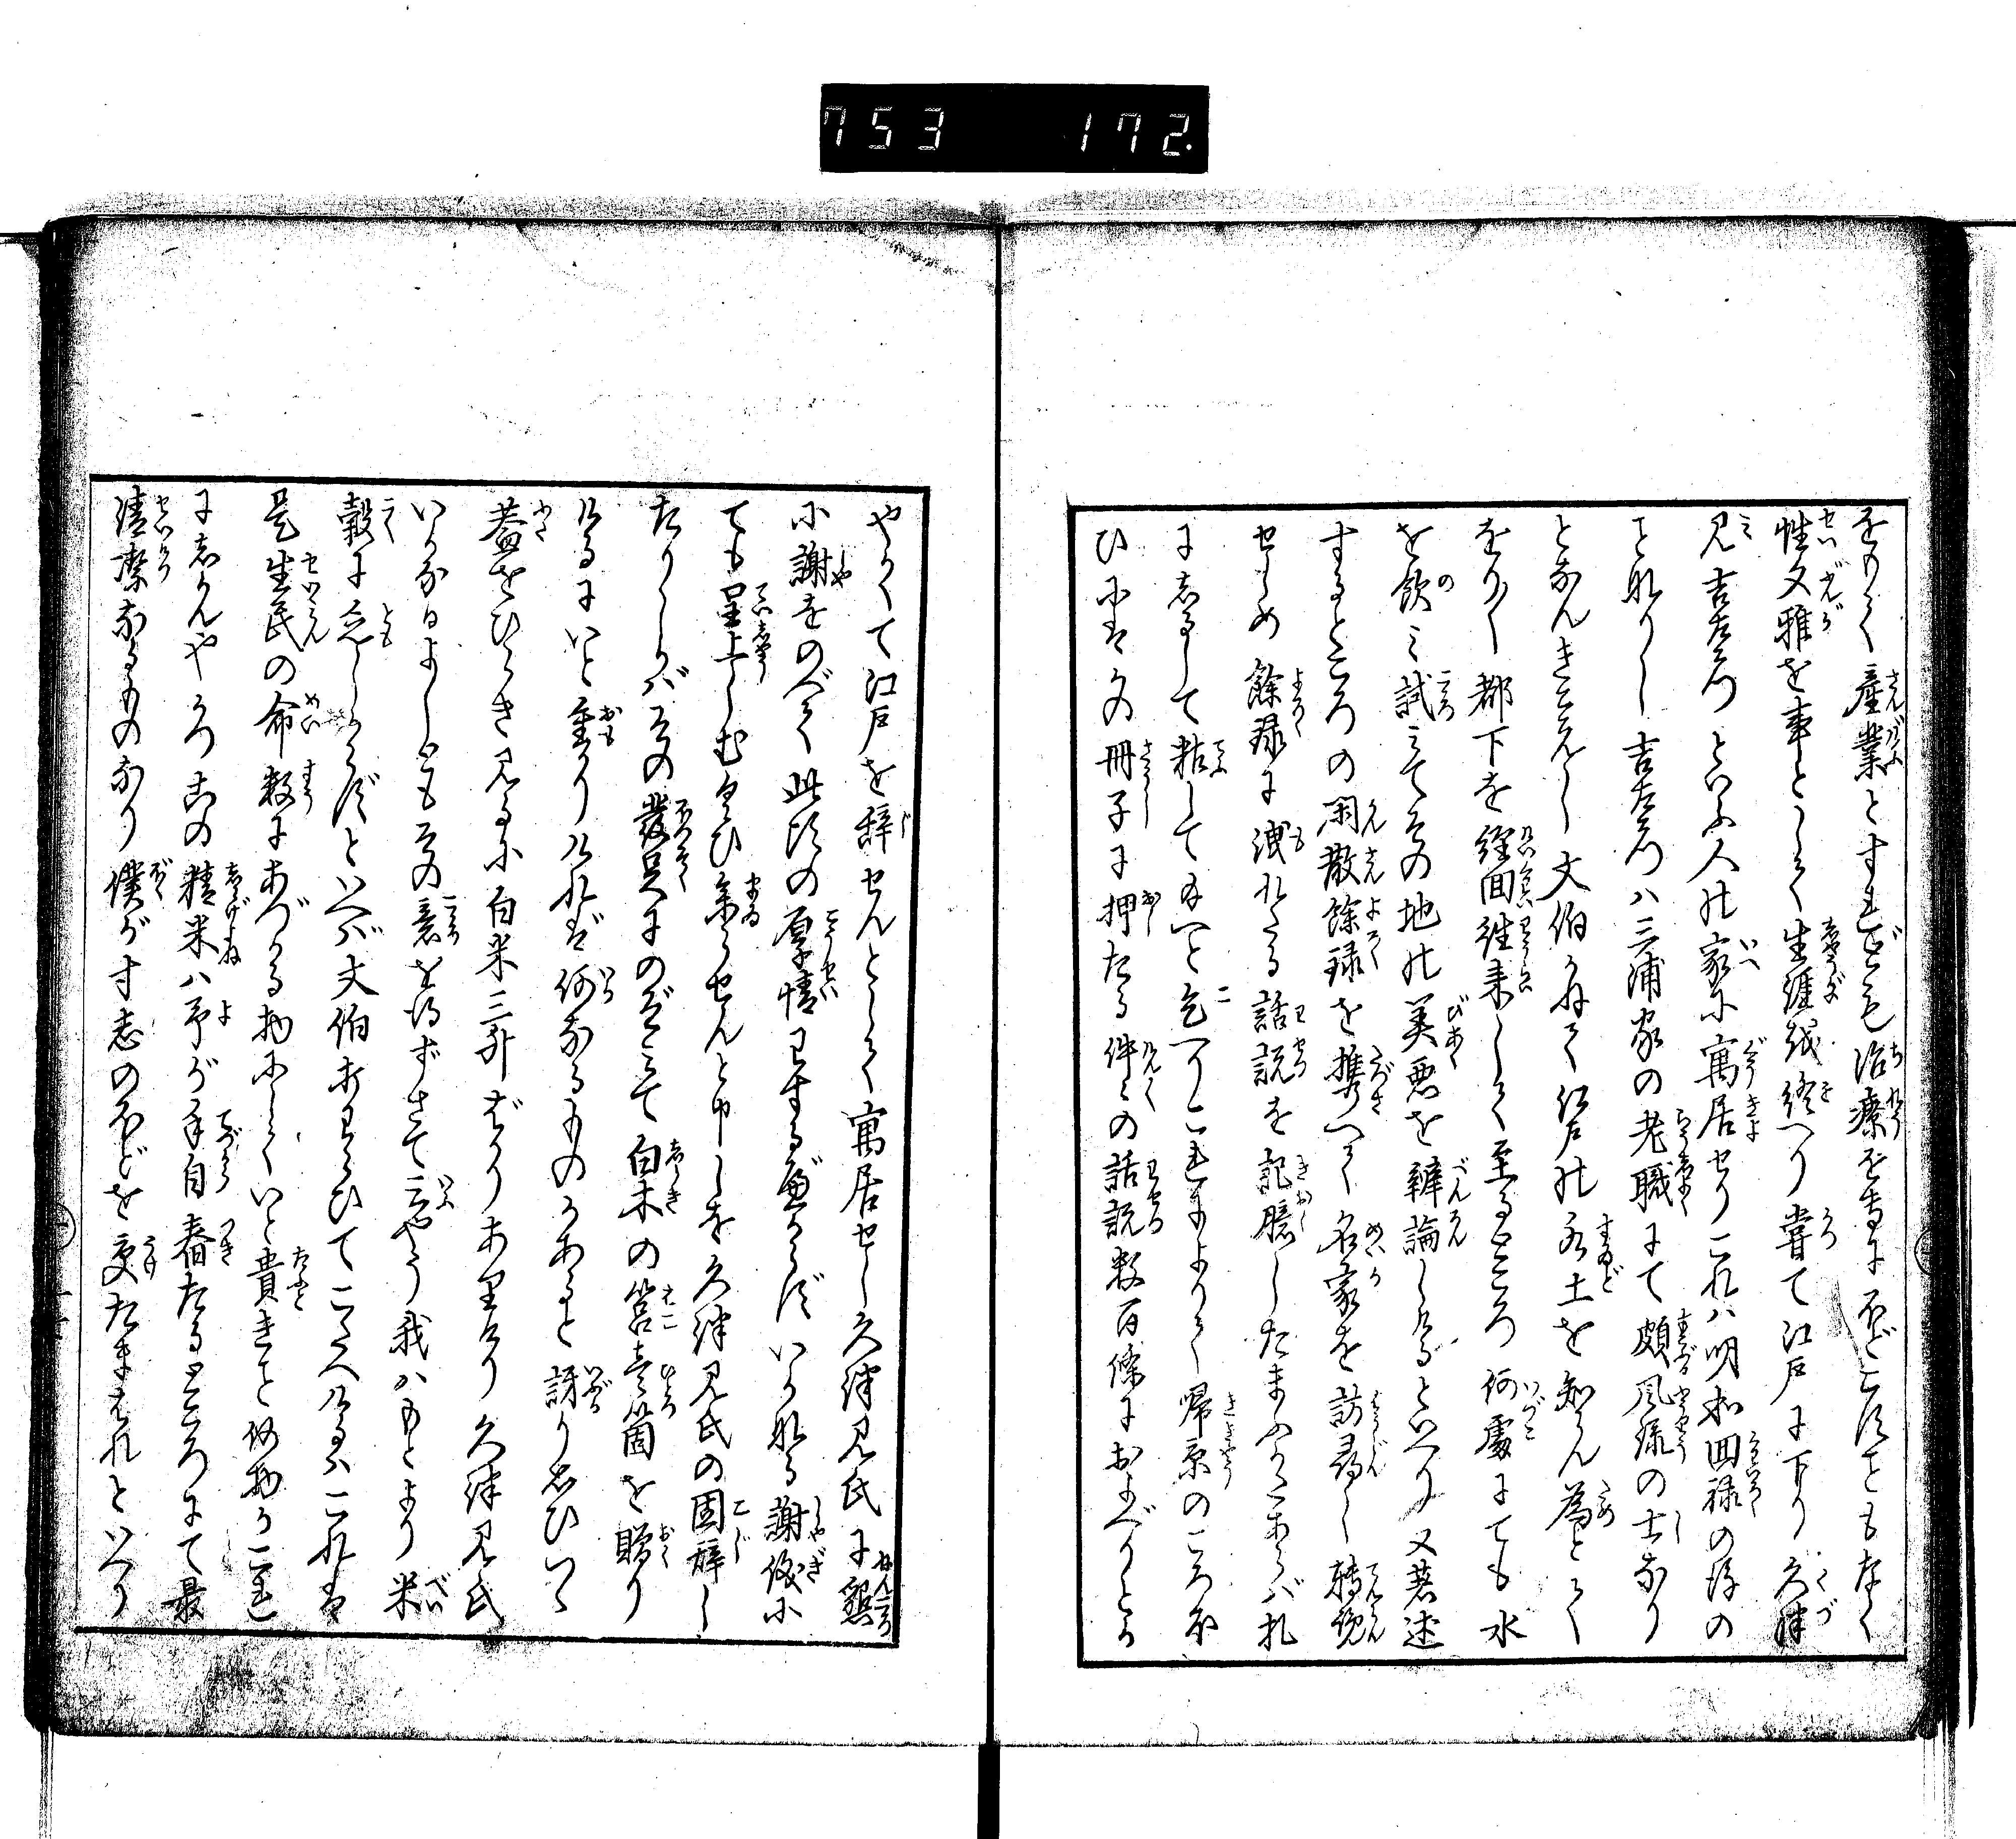 753 172.
をもて産業とすれども治療を専にほどこすこともなく
性文雅を事として生涯を終へり嘗て江戸に下り久津
見吉左衛門といふ人の家に寓居せりこれハ明和回禄の後の
ことなりし吉左衛門ハ三浦家の老職にて頗風流の士なり
となんきこえし文伯かねて江戸の水土を知らん為とて
をりをり都下を經回徃来して至るところ何處にても水
を飲ミ試ミてその地の美悪を辨論しけるといへり又著述
するところの閑散餘録を携へて名家を訪尋し轉覧
せしめ餘録に洩れたる話説を記臆したまふことあらバ札
にしるして粘して給へと乞へりこれによりて帰京のころほ
ひにはかの冊子に押たる件々の話説数百條におよべりとか
やかくて江戸を辞せんとして寓居せし久津見氏に懇
に謝をのべて此ほどの厚情わするべからずいかなる謝儀に
ても呈上しむくひ参らせんと申しを久津見氏の固辞し
たりしがその發足にのぞミて白木の筥壱箇を贈り
けるにいと重かりければ何なるものかあると訝り思ひつゝ
蓋をひらき見るに白米三升ばかりありけり久津見氏
いかなるよしともその意を得ずさて云やう我ハもとより米
穀に乏しからずといへバ文伯わらひてこたへけるハこれは
是生民の命数にあづかる物にしていと貴きこと何物かこれ
にしかんやかつこの精米ハ予が手自舂たるところにて最
清潔なるものなり僕が寸志のほどを受たまはれといへり